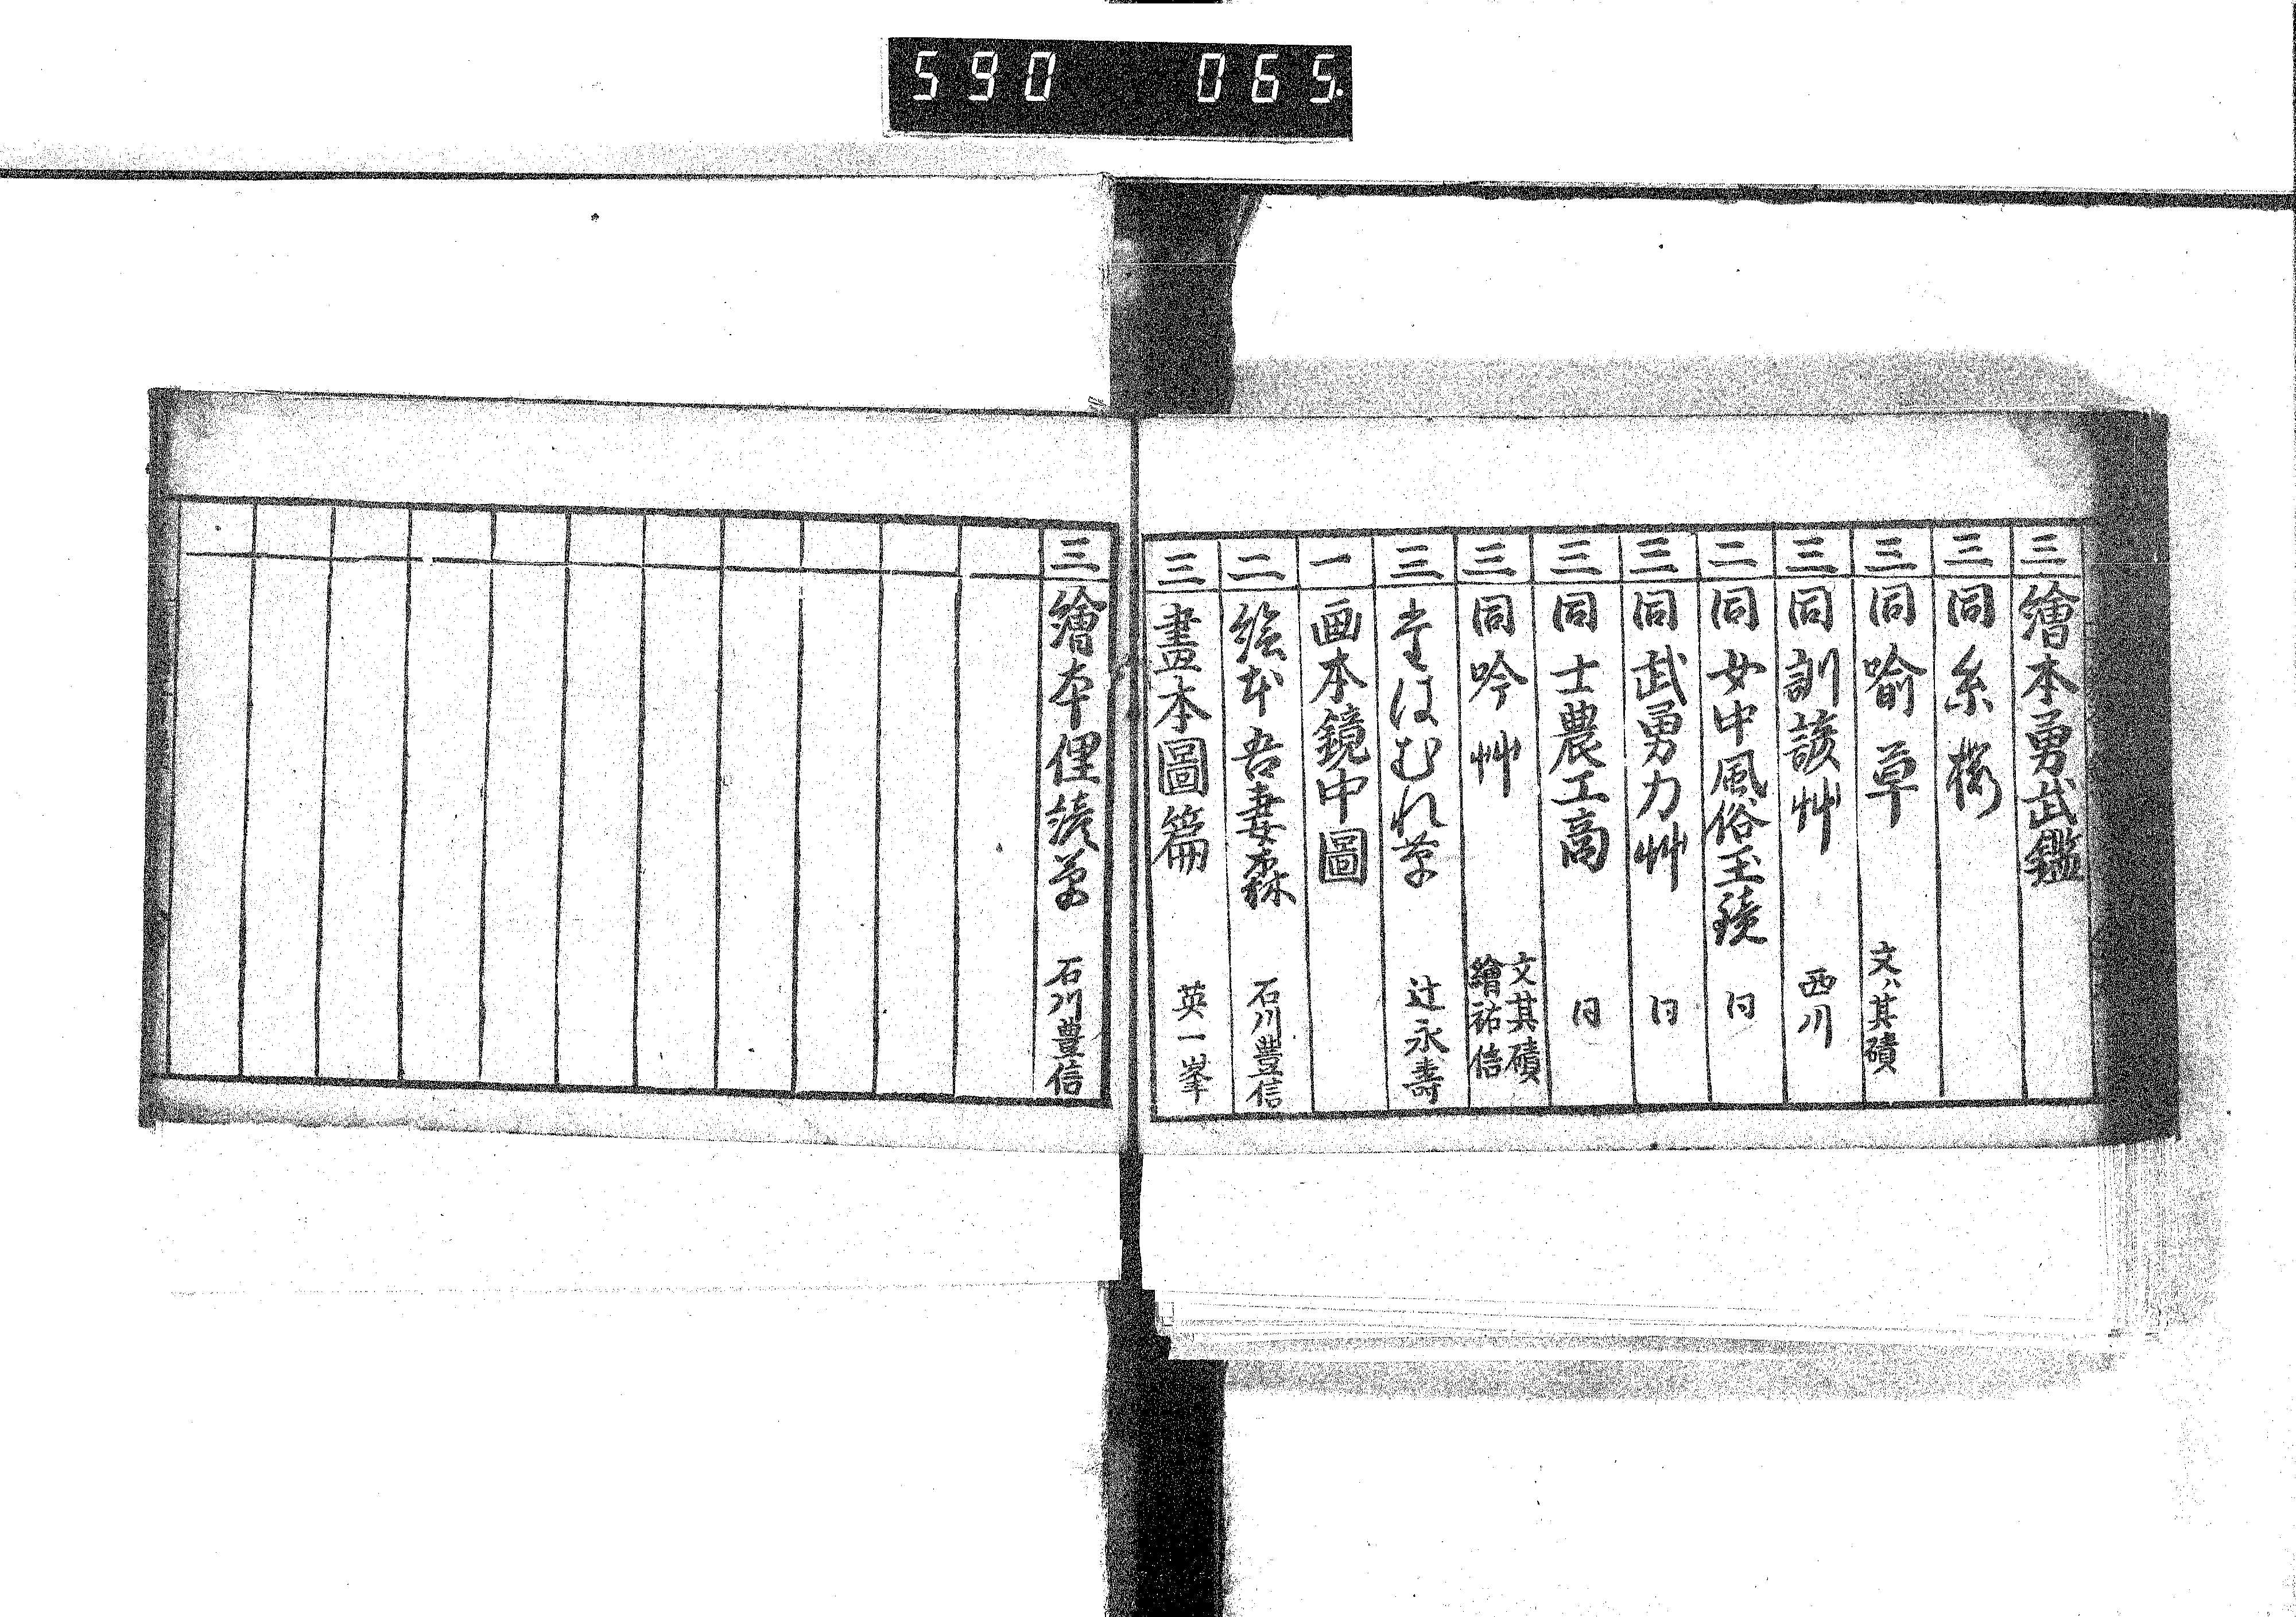 590 065
三 繪本勇武鑑
三 同 糸櫻
三 同 喩草 文ハ其磧
三 同 訓蒙艸 西川
二 同 女中風俗玉鏡 同
三 同 武勇力艸 同
三 同 士農工商 同
三 同 吟艸 文其磧 繪祐信
三 たはむれ草 辻永壽
一 画本鏡中圖
二 絵本吾妻森 石川豊信
三 畫本圖篇 英一峯
三 繪本俚諺草 石川豊信